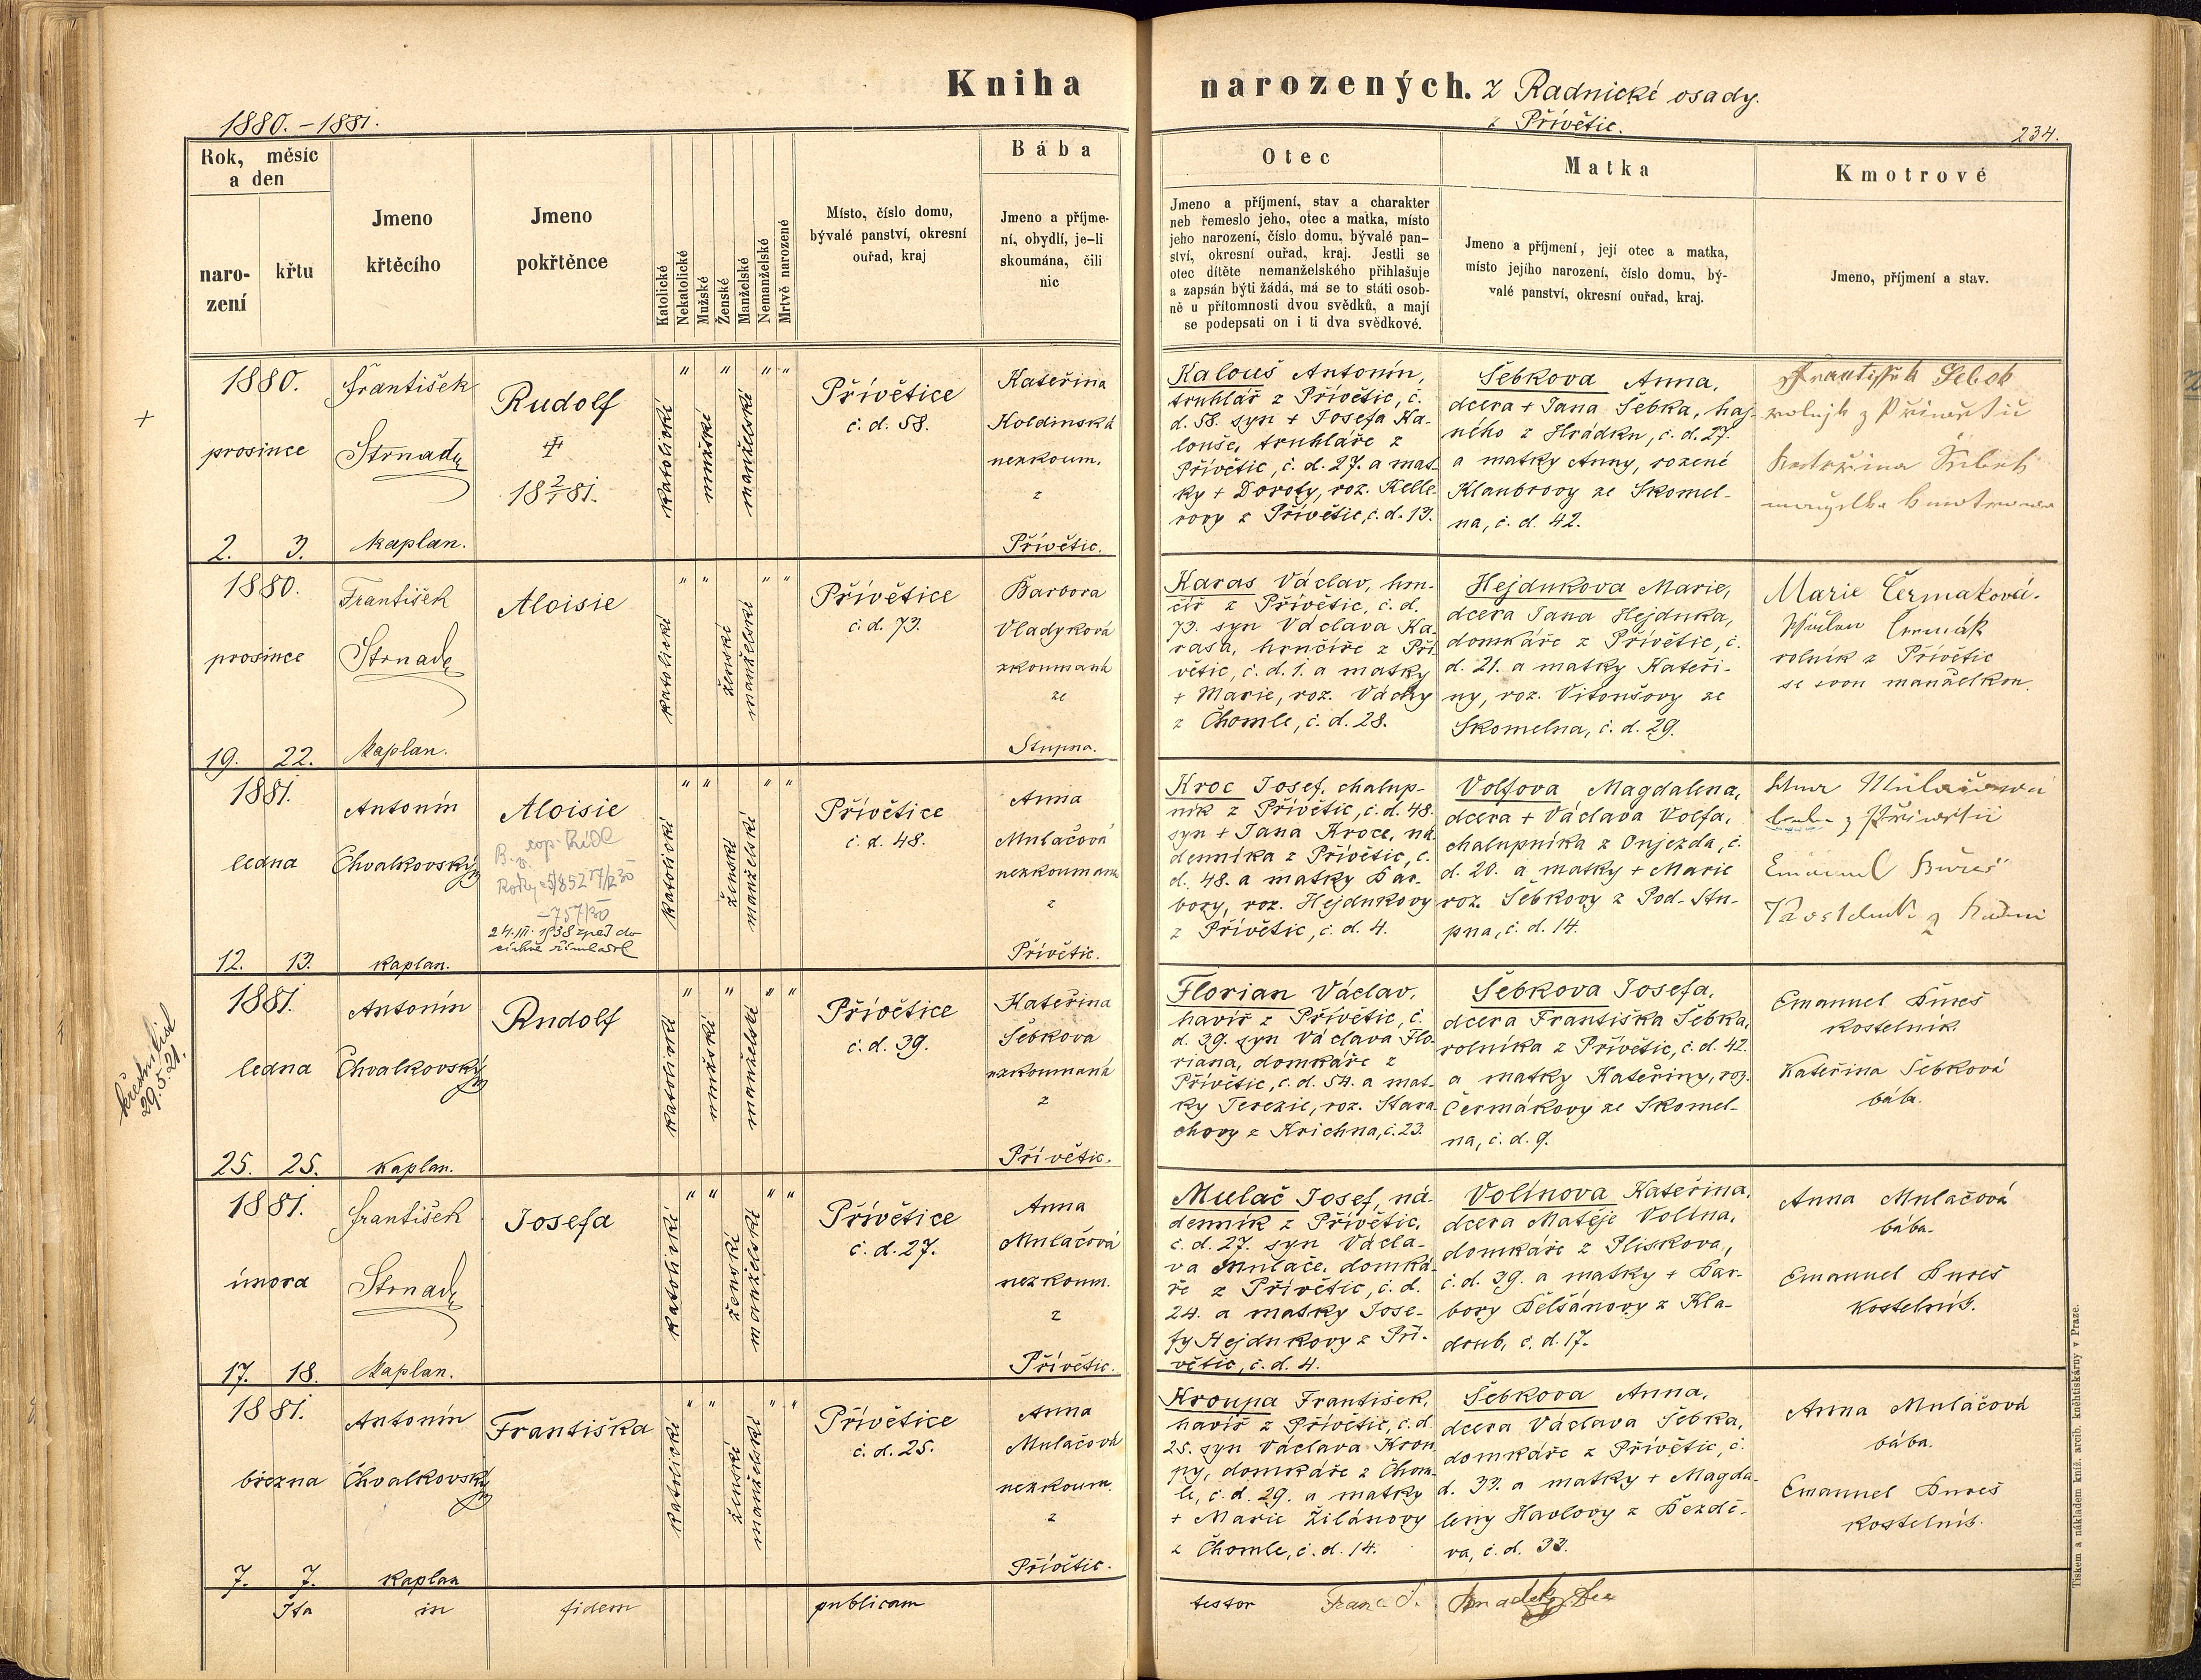 Kniha narozených. z Radnické osady.
z Přívětic.
1880. – 1881.
234.
Rok, měsíc
a den
naro-
zení
křtu
Jmeno
křtěcího
Jmeno
pokřtěnce
Katolické
Nekatolické
Mužské
Ženské
Manželské
Nemanželské
Mrtvě narozené
Místo, číslo domu,
bývalé panství, okresní
ouřad, kraj
Bába
Jmeno a příjme-
ní, obydlí, je-li
skoumána, čili
nic
Otec
Jmeno a příjmení, stav a charakter
neb řemeslo jeho, otec a matka, místo
jeho narození, číslo domu, bývalé pan-
ství, okresní ouřad, kraj. Jestli se
otec dítěte nemanželského přihlašuje
a zapsán býti žádá, má se to státi osob-
ně u přítomnosti dvou svědků, a mají
se podepsati on i ti dva svědkové.
Matka
Jmeno a příjmení, její otec a matka,
místo jejího narození, číslo domu, bý-
valé panství, okresní ouřad, kraj.
Kmotrové
Jmeno, příjmení a stav.
+
1880.
prosince
2. 3.
František
Strnad
kaplan.
Rudolf
18 2/1 81.
katolické
" mužské
" manželské
" "
Přívětice
č. d. 58.
Kateřina
Koldinská
nezkoum.
z
Přívětic.
Kalouš Antonín,
truhlář z Přívětic, č.
d. 58. syn + Josefa Ka-
louše, truhláře z
Přívětic, č. d. 27. a mat-
ky + Doroty, roz. Kelle-
rovy z Přívětic, č. d. 13.
Šebkova Anna,
dcera + Jana Šebka, haj-
ného z Hrádku, č. d. 27.
a matky Anny, rozené
Klaubrovy ze Skomel-
na, č. d. 42.
František Šebek
rolnjk z Přivětic
Kateřina
manželka
1880.
prosince
19. 22.
František
Strnad
kaplan.
Aloisie
katolické
" "
ženské
manželské
" "
Přívětice
č. d. 73.
Barbora
Vladyková
zkoumaná
ze
Stupna.
Karas Václav, hrn-
číř z Přívětic, č. d.
73. syn Václava Ka-
rasa, hrnčíře z Pří-
větic, č. d. 1. a matky
+ Marie, roz. Váchy
z Chomle, č. d. 28.
Hejdukova Marie,
dcera Jana Hejduka,
domkáře z Přívětic, č.
d. 21. a matky Kateři-
ny, roz. Vitoušovy ze
Skomelna, č. d. 29.
Marie Čermaková.
Čermák
rolník z Přívětic
se svou manželkou.
1881.
ledna
12. 13.
Antonín
Chvalkovský
kaplan.
Aloisie
24. III. 1938 zpět do
církve
katolické
" "
ženské
manželské
" "
Přívětice
č. d. 48.
Anna
Mulačová
nezkoumana
z
Přívětic.
Kroc Josef, chalup-
ník z Přívětic, č. d. 48.
syn + Jana Kroce, ná-
denníka z Přívětic, č.
d. 48. a matky Bar-
bory, roz. Hejdukovy
z Přívětic, č. d. 4.
Volfova Magdalena,
dcera + Václava Volfa,
chalupníka z Oujezda, č.
d. 20. a matky + Marie
roz. Šebkovy z Pod-Stu-
pna, č. d. 14.
Anna Mulačova
baba z Přivětic
Emanuel Bureš
Kostelník z
křestní list
29.5.21.
1881.
ledna
25. 25.
Antonín
Chvalkovský
kaplan.
Rudolf
katolické
"
mužské
"
manželské
" "
Přívětice
č. d. 39.
Kateřina
Šebkova
nezkoumaná
z
Přívětic.
Florian Václav,
havíř z Přívětic, č.
d. 39. syn Václava Flo-
riana, domkáře z
Přívětic, č. d. 54. a mat-
ky Terezie, roz. Stara-
chovy z Křichna, č. 23.
Šebkova Josefa,
dcera Františka Šebka,
rolníka z Přívětic, č. d. 42.
a matky Kateřiny, roz.
Čermákovy ze Skomel-
na, č. d. 9.
Emanuel Bureš
kostelník.
Kateřina Šebková
bába.
1881.
února
17. 18.
František
Strnad
kaplan.
Josefa
katolické
" "
ženské
manželské
" "
Přívětice
č. d. 27.
Anna
Mulačová
nezkoum.
z
Přívětic.
Mulač Josef, ná-
denník z Přívětic,
č. d. 27. syn Václa-
va Mulače, domká-
ře z Přívětic, č. d.
24. a matky Jose-
fy Hejdukovy z Pří-
větic, č. d. 4.
Volínova Kateřina,
dcera Matěje Volína,
domkáře z Pliskova,
č. d. 39. a matky + Bar-
bory Bělšánovy z Kla-
drub, č. d. 17.
Anna Mulačová
bába.
Emanuel Bureš
Kostelník.
1881.
března
7. 7.
Antonín
Chvalkovský
kaplan
Františka
katolické
" "
ženské
manželské
" "
Přívětice
č. d. 25.
Anna
Mulačová
nezkoum.
z
Přívětic.
Kroupa František,
havíř z Přívětic, č. d.
25. syn Václava Krou-
py, domkáře z Chom-
le, č. d. 29. a matky
+ Marie Žilánovy
z Chomle, č. d. 14.
Šebkova Anna,
dcera Václava Šebka,
domkáře z Přívětic, č.
d. 33. a matky + Magda-
leny Havlovy z Bezdě-
va, č. d. 33.
Anna Mulačová
bába.
Emanuel Bureš
kostelník.
Ita in fidem publicam testor Franc. S.
Tiskem a nákladem kníž. arcib. knihtiskárny v Praze.